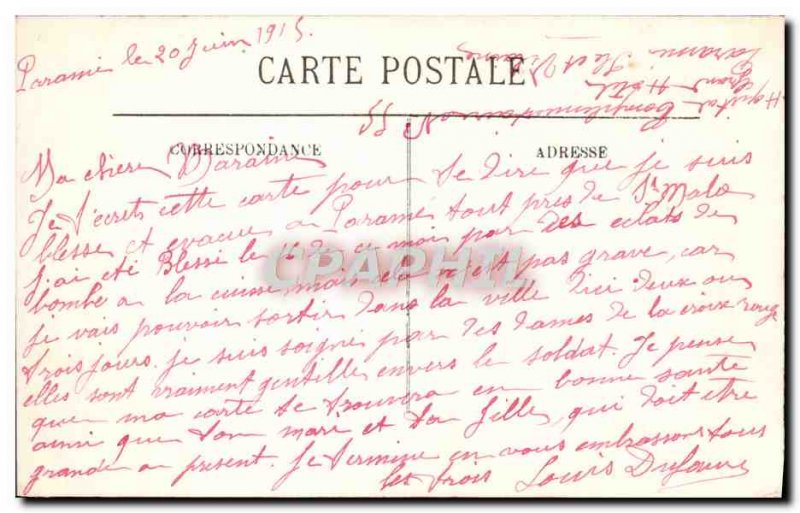 Paramé le 20 Juin 1915.
CARTE POSTALE
Hopital Complementaire 55
Grand Hôtel
Paramé Ile et Vilaine
CORRESPONDANCE
ADRESSE
Ma chere Maraine
Je t'ecrits cette carte pour te dire que je suis
blesse et evacue a Paramé tout pres de St Malo
j'ai été Blessé le de ce mois par des eclats de
bombe a la cuisse, mais pas grave, car
je vais pouvoir sortir dans la ville d'ici deux ou
trois jours. je suis soigné par des dames de la croix rouge
elles sont vraiment gentilles envers le soldat. Je pense
que ma carte te trouvera en bonne santé
ainsi que ton mare et ta fille, qui doit etre
grande a present. Je termine en vous embrassant tous
les trois Louis
CPAPHIL